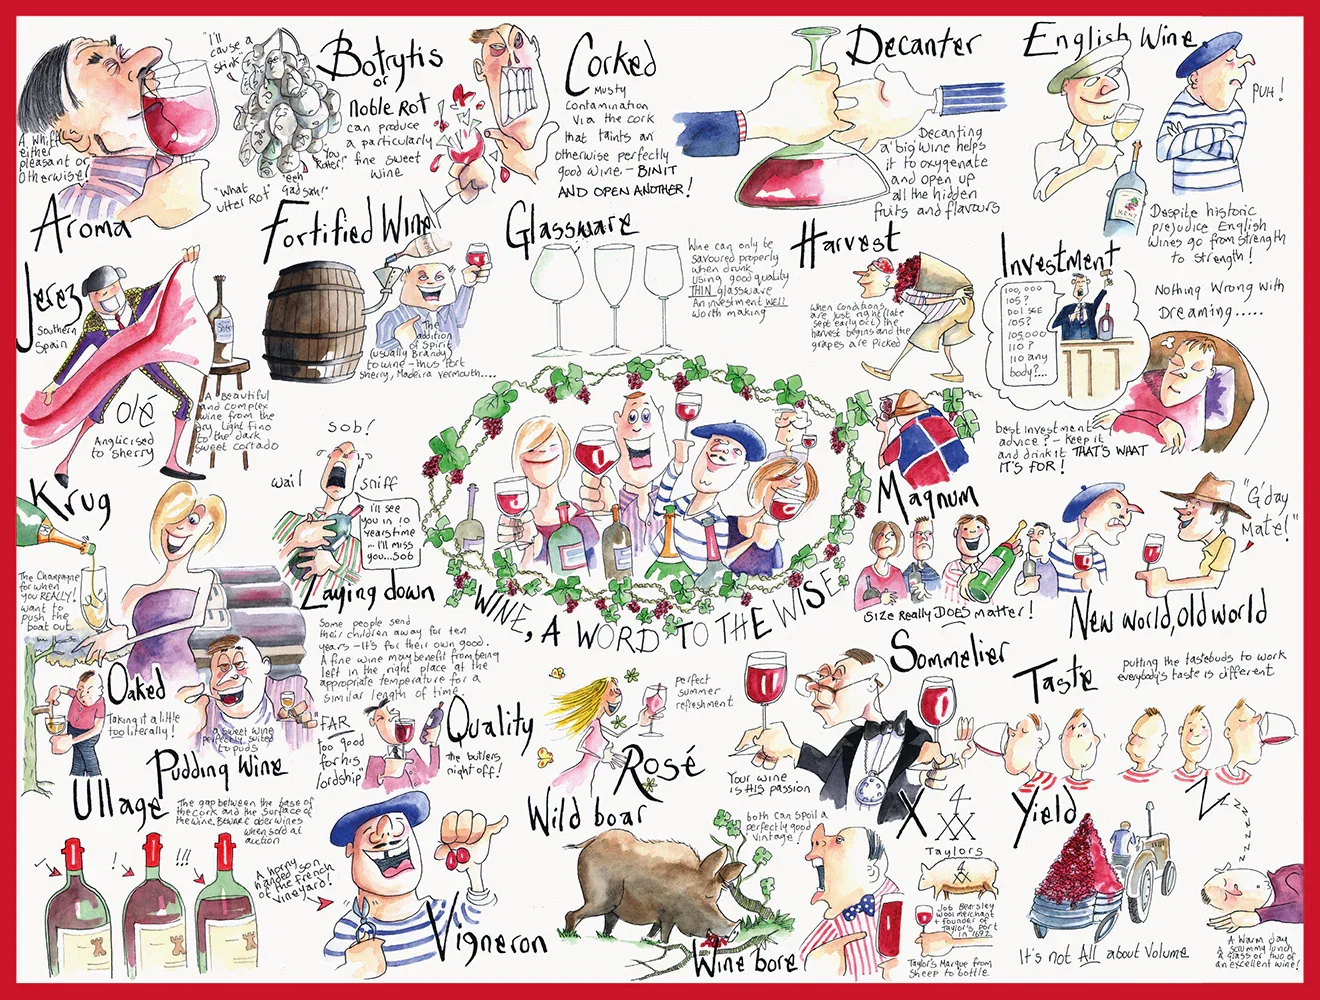 A whiff
either
pleasant or
otherwise!
Aroma
"I'll
cause a
stink"
"You
Rotter!"
"What
utter Rot"
Botrytis
or
noble Rot
can produce
a particularly
fine sweet
wine
Corked
Musty
contamination
via the cork
that taints an
otherwise perfectly
good wine - BIN IT
AND OPEN ANOTHER!
Decanter
Decanting
a 'big' wine helps
it to oxygenate
and open up
all the hidden
fruits and flavours
English Wine
PUH!
KENT
Despite historic
prejudice English
Wines go from strength
to strength!
Jerez
Southern
Spain
Olé
Anglicised
to sherry
A beautiful
and complex
wine from the
dry light fino
to the dark
sweet cortado
Fortified Wine
The
addition
of spirit
(usually Brandy)
to wine - thus Port
Sherry, Madeira Vermouth....
Glassware
Wine can only be
savoured properly
when drunk
using good quality
THIN glassware
An investment WELL
worth making
Harvest
When conditions
are just right (late
sept early oct) the
harvest begins and the
grapes are picked
Investment
100,000
105?
Do I see
105?
105,000
110?
110 any
body?...
Nothing Wrong with
Dreaming.....
best investment
advice? - keep it
and drink it THAT'S WHAT
IT'S FOR!
Krug
The Champagne
for when
you REALLY!
want to
push the
boat out
Sob!
wail
sniff
i'll see
you in 10
years time
- I'll miss
you...sob
Laying down
Some people send
their children away for ten
years - it's for their own good.
A fine wine may benefit from being
left in the right place at the
appropriate temperature for a
similar length of time.
WINE, A WORD TO THE WISE
Magnum
Size Really DOES matter!
"G'day
Mate!"
New world, Old world
Oaked
Taking it a little
too literally!
a sweet wine
perfectly suited
to puds
Pudding Wine
"FAR
too good
for his
lordship"
Quality
the butlers
night off!
perfect
summer
refreshment
Rosé
Sommelier
Your wine
is HIS passion
Taste
putting the tastebuds to work
everybody's taste is different
Ullage
The gap between the base of
the cork and the surface of
the wine, Beware older wines
when sold at
auction
! !!!
A horny
handed son
of the french
vineyard!
Vigneron
Wild boar
both can spoil a
perfectly good
vintage!
Wine bore
X
4
XX
Taylors
Job Bearsley
Wool merchant
+ founder of
Taylor's Port
in 1692
Taylor's Marque from
Sheep to bottle
Yield
It's not All about Volume
Z z z z z z z
A Warm day
A scrummy lunch
A glass or two of
an excellent wine!